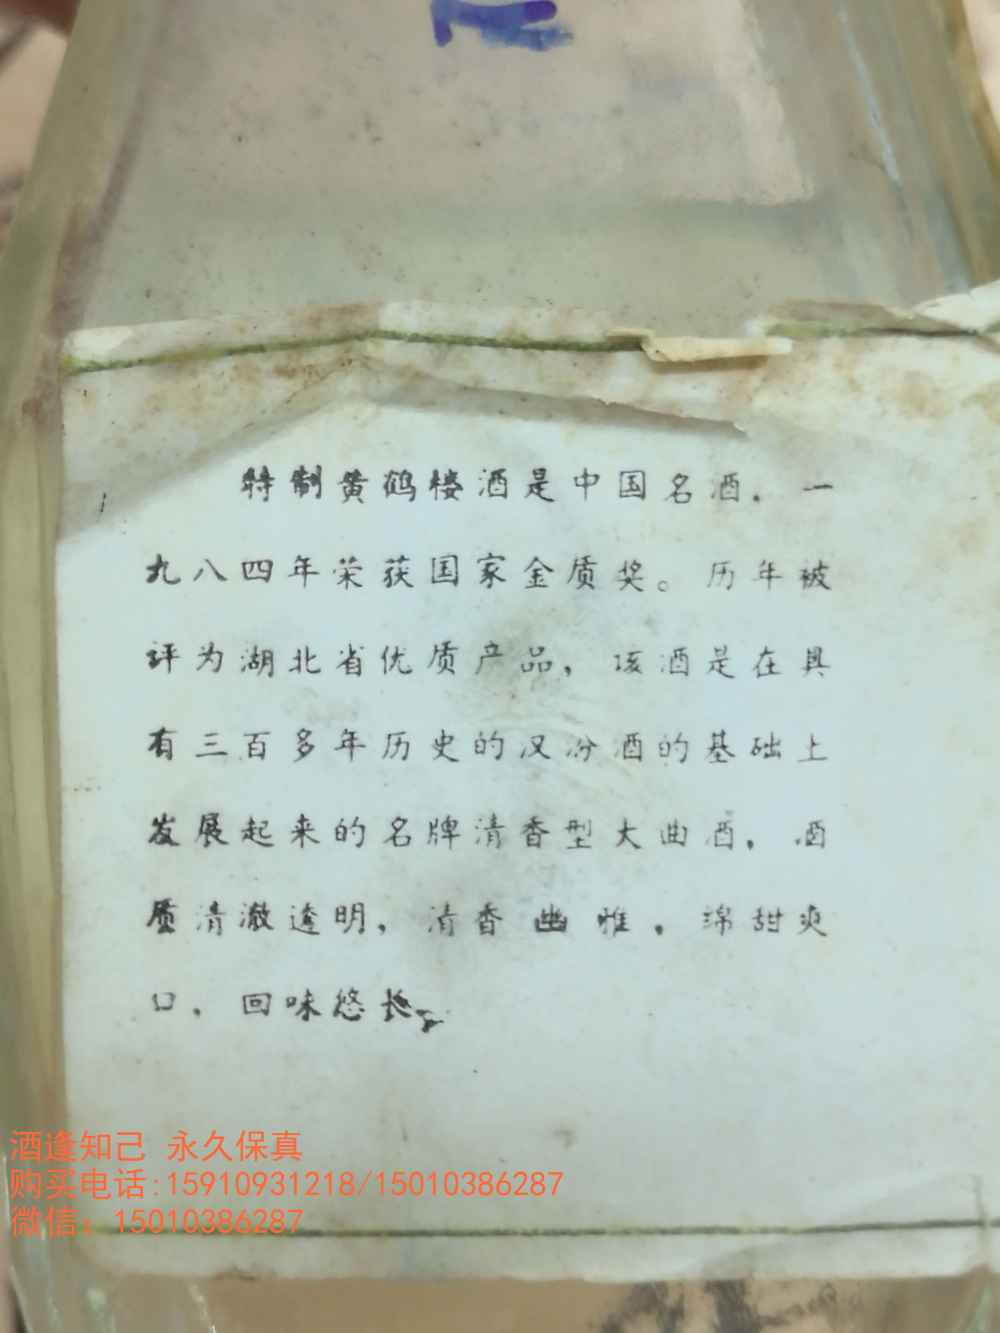 特制黄鹤楼酒是中国名酒，一
九八四年荣获国家金质奖。历年被
评为湖北省优质产品，该酒是在具
有三百多年历史的汉汾酒的基础上
发展起来的名牌清香型大曲酒，酒
质清澈透明，清香幽雅，绵甜爽
口，回味悠长。
酒逢知己 永久保真
购买电话:15910931218/15010386287
微信：15010386287